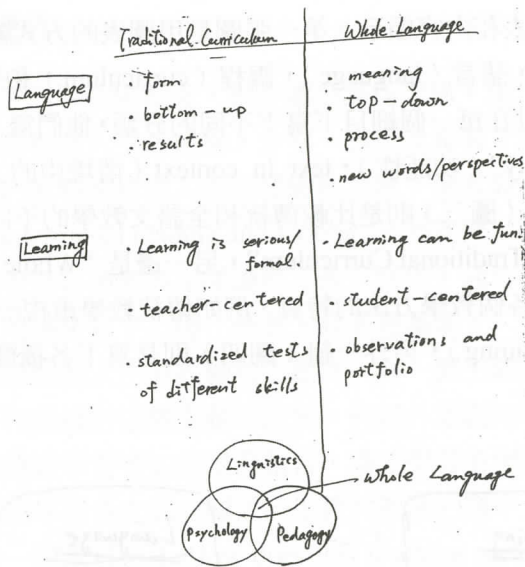 Traditional Curriculum
Whole Language
Language
· form
· bottom-up
· results
· meaning
· top-down
· process
· new words/perspectives
Learning
· Learning is serious/
formal
· teacher-centered
· standardized tests
of different skills
· Learning can be fun
· student-centered
· observations and
portfolio
Linguistics
Psychology
Pedagogy
Whole Language